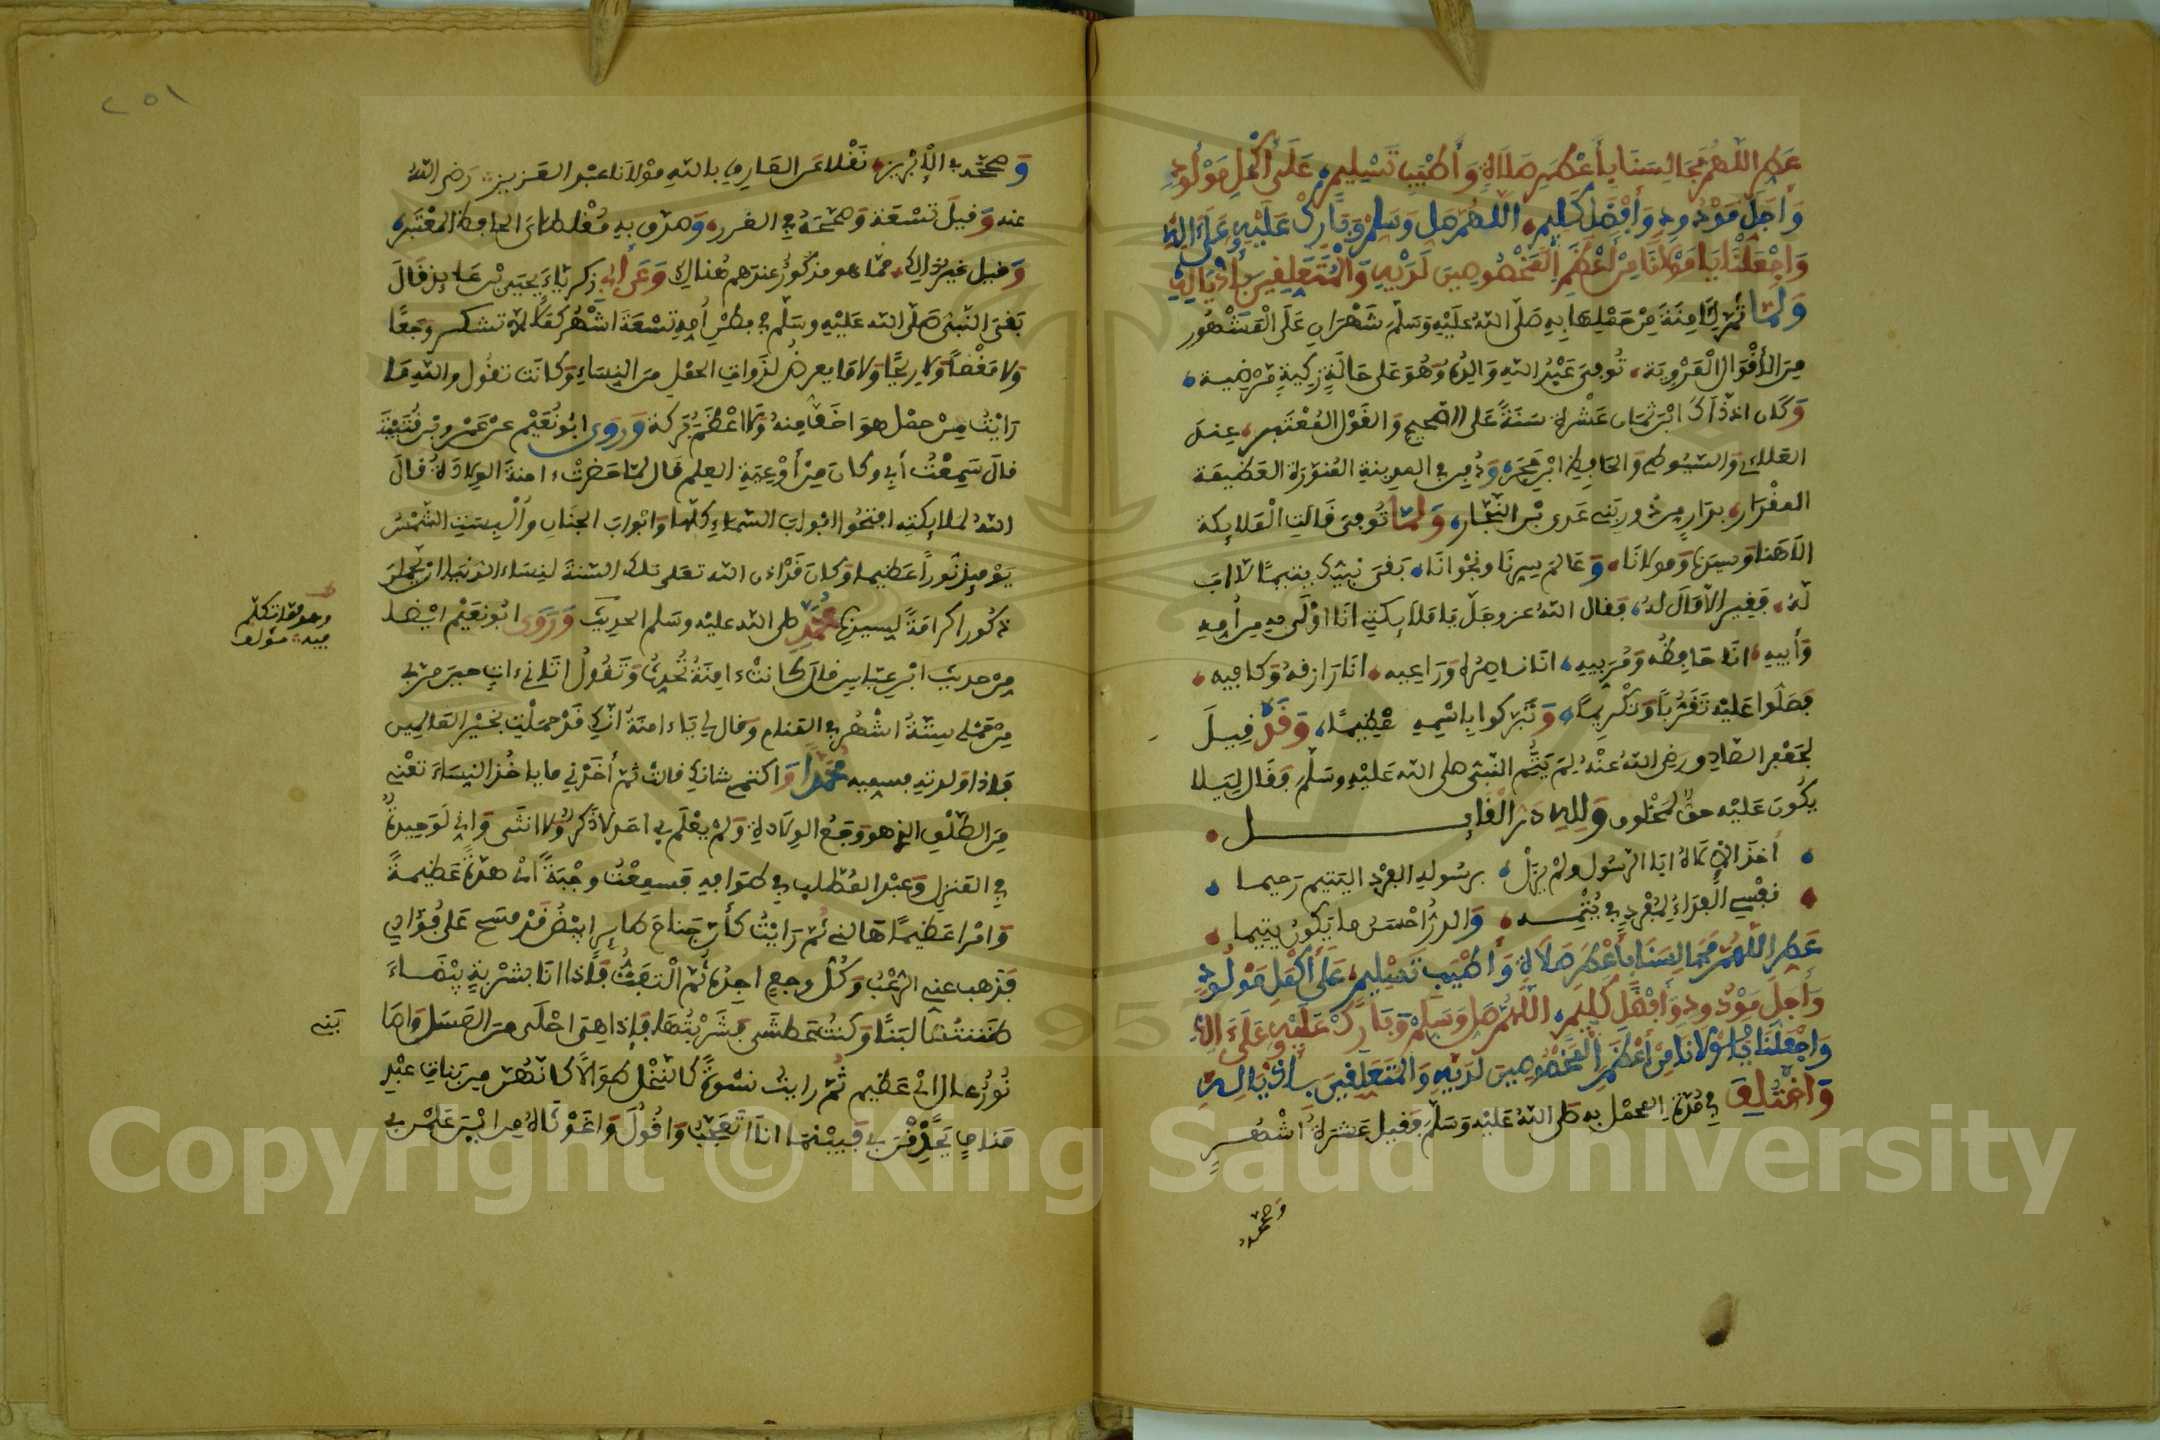 عطر اللهم مجالسنا بأعطر صلاة وأطيب تسليم، على أكمل مولود
وأجل مودود وأفضل كليم، اللهم صل وسلم وبارك عليه وعلى اله
واجعلنا يا مولانا من أعظم المخصوصين لديه والمتعلفين بأذياله
ولما تم لامنة من حملها به صلى الله عليه وسلم شهران على المشهور
من الأقوال المروية، توفى عبد الله والده وهو على حالة زكية مرضية،
وكان اذ ذاك ابن ثمان عشرة سنة على الصحيح والقول المعتبر، عند
العلائ والسيوطى والحافظ ابن حجر، ودفن فى المدينة المنورة العظيمة
المقدار، بدار من دور بنى عدى بن النجار، ولما توفى قالت الملائكة
الاهنا وسيدنا ومولانا، وعالم سرنا ونجوانا، بقى نبيك يتيما لا اب
له، فقير لا مال له، فقال الله عز وجل يا ملائكتى انا اولى به من أمه
وأبيه، انا حافظه ومربيه، انا ناصره وراعيه، انا رازقه وكافيه،
فصلوا عليه تقربا وتكريما، وتبركوا باسمه عظيما، وقد قيل
لجعفر الصادق رضى الله عنه لم يتم النبى صلى الله عليه وسلم فقال ليلا
يكون عليه حق لمخلوق ولله در القائل
أخذ الإلاه ابا الرسول ولم يزل برسوله الفرد اليتيم رحيما
نفسى الفداء لمفرد فى يتمه والدر أحسن ما يكون يتيما
عطر اللهم مجالسنا بأعطر صلاة وأطيب تسليم، على أكمل مولود
وأجل مودود وأفضل كليم، اللهم صل وسلم وبارك عليه وعلى اله
واجعلنا يا مولانا من أعظم المخصوصين لديه والمتعلفين بأذياله
واختلف فى مدة الحمل به صلى الله عليه وسلم فقيل عشرة أشهر
وصححه
٢٥١
وصححه فى الإبريز، نقلا عن العارف بالله مولانا عبد العزيز رضى الله
عنه وقيل تسعة وصححه فى الغرر، وصرف به مغلطاى الحافظ المعتبر،
وقيل غير ذالك، مما هو مذكور عندهم هنالك وعن أبى زكرياء يحيى بن عائذ قال
بقى النبى صلى الله عليه وسلم فى بطن أمه تسعة اشهر كملا لا تشكو وجعا
ولا مغصا ولا ريحا ولا ما يعرض لذوات الحمل من النساء وكانت تقول والله ما
رايت من حمل هو اخف منه ولا اعظم بركة وروى ابو نعيم عن عمرو بن قتيبة
قال سمعت أبى وكان من أوعية العلم قال لما حضرت ءامنة الولادة قال
الله لملائكته افتحوا ابواب السماء كلها وابواب الجنان وألبست الشمس
يومئذ نورا عظيما وكان قد اذن الله تعلى تلك السنة لنساء الدنيا ان يحملن
ذكورا كرامة لسيدنا محمد صلى الله عليه وسلم الحديث وروى ابو نعيم ايضا
وهو مما تكلم
فيه مؤلف
من حديث ابن عباس قال كانت ءامنة تحدث وتقول اتانى ءات حين مر بى
من حملى ستة اشهر فى المنام وقال لى يا ءامنة انك قد حملت بخير العالمين
فاذا ولدته فسميه محمدا واكتمى شانك قالت ثم أخذنى ما ياخذ النساء تعنى
من الطلق الذى هو وجع الولادة ولم يعلم بى احد لا ذكر ولا انثى وانى لوحيدة
فى المنزل وعبد المطلب فى طوافه فسمعت وجبة اى هدة عظيمة
وامرا عظيما هالنى ثم رايت كأن جناح طاير ابيض قد مسح على فؤادى
فذهب عنى الرعب وكل وجع اجده ثم التفت فاذا انا بشربة بيضاء
ظننتها لبنا وكنت عطشى فشربتها، فإذا هى احلى من العسل واصا
بنى
نور عال اى عظيم ثم رايت نسوة كالنخل طوالا كانهن من بنات عبد
مناف يحدقن بى فبينما انا اتعجب واقول واغوثاه من اين علمن بى